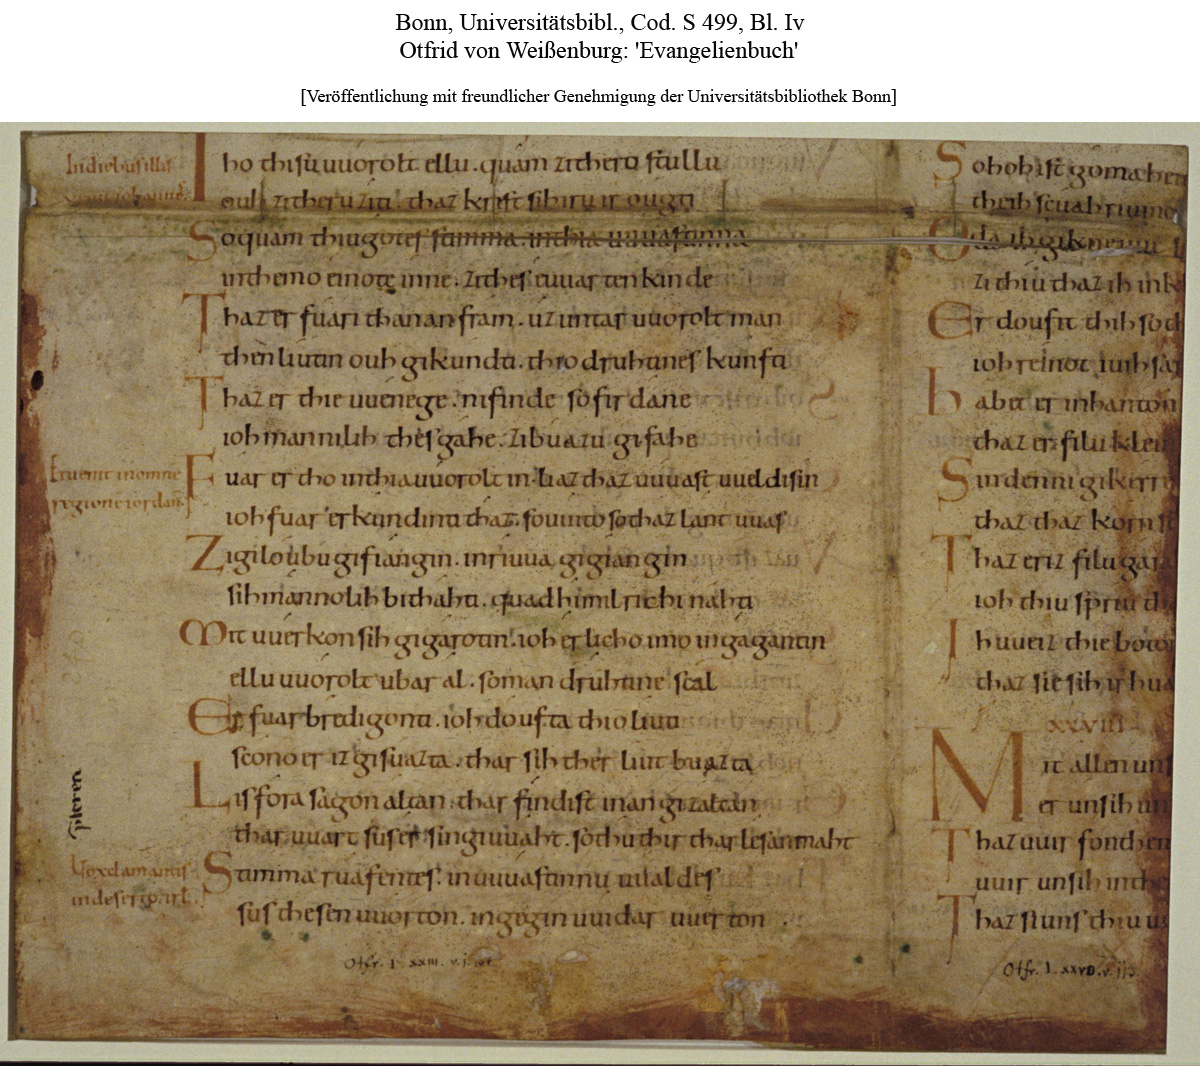 Bonn, Universitätsbibl., Cod. S 499, Bl. Iv
Otfrid von Weißenburg: 'Evangelienbuch'
[Veröffentlichung mit freundlicher Genehmigung der Universitätsbibliothek Bonn]
Indiebusillis
Iho thisu uuorolt ellu . quam zi thero stullu
ouh zi theru ziti . thaz krist sih iru ir ougti
So quam thiu gotes stimma . in thia uuuastinna
in themo einote inne . zi thes euuarten kinde
Thaz er fuari thanan fram . uz untar uuorolt man
then liutin ouh gikundti . thio druhtines kunfti
Thaz er thie uuenege . ni finde so firdane
ioh mannilih thes gahe . zi buazu gifahe
Eruenit inomne
regione iordan
Fuar er tho in thia uuorolt in . liaz thaz uuuast uueldi sin
ioh fuar er kundinti thaz . so uuito so thaz lant uuas
Zi giloubu gifiangin . in riuua gigiangin
sih mannolih bithahti . quad himilrichi nahti
Mit uuerkon sih gigarotin . ioh er licho imo ingagantin
ellu uuorolt ubar al . so man druhtine scal
Er fuar bredigonti . ioh doufta thio liuti
scono er iz gisuazta . thar sih ther liut buazta
Lis fora sagon altan . thar findist inan gizaltan
thar uuart sus er singiuuaht . so thu thir thar lesan maht
Uox clamantis
indeserto.
Stimma ruafentes . in uuuastinnu uualdes
sus thesen uuorton . ingegin uuidar uuerton
Otfr. I. XXIII. v. j.
So hoh ist gomaheit
theih scuahriumo
zi thiu thaz ih ink
Er doufit thih so
ioh reinot iuih sar
habet er in hanton
thaz er filu klein
Sin denni gikerre
thaz thaz korn
Thaz er iz filu gar
ioh thiu spriu
Ih uueiz thie boto
thaz sie sih ir hua
XXVIII
Mit allen uns
er unsih un
Thaz uuir fon then
uuir unsih in the
Thaz si uns thiu